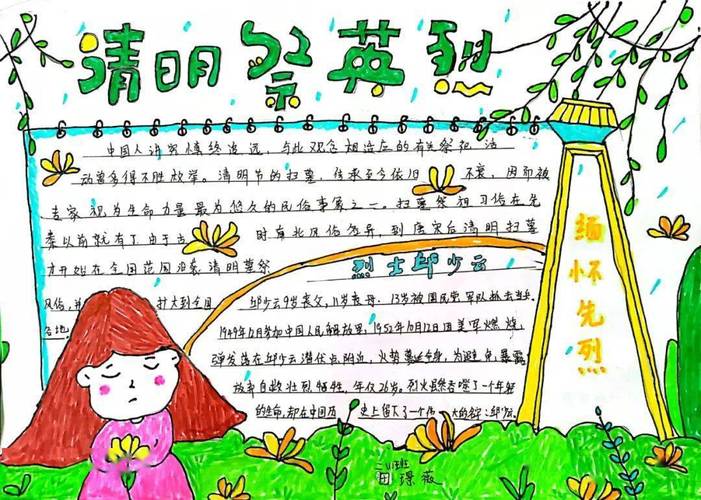 清明祭英烈
中国人讲究慎终追远，与此观念相适应的有关祭祀活
动曾多得不胜枚举。清明节的扫墓，传承至今依旧不衰，因而被
专家视为生命力量最为悠久的民俗事象之一。扫墓祭祖习俗在先
秦以前就有了由于古时南北风俗各异，到唐宋后清明扫墓
才开始在全国范围沿袭清明墓祭
风俗并扩大到全国
各地
烈士邱少云
邱少云9岁丧父，11岁丧母，13岁被国民党军队抓去当兵
1949年12月参加中国人民解放军，1952年10月12日因美军燃烧
弹发落在邱少云潜伏点附近，火势蔓延全身，为避免暴露
放弃自救壮烈牺牲，年仅26岁，烈火虽然吞噬了一个年轻
的生命，却在中国历史上留下了一个伟大的名字：邱少云。
缅怀先烈
班
田璟薇